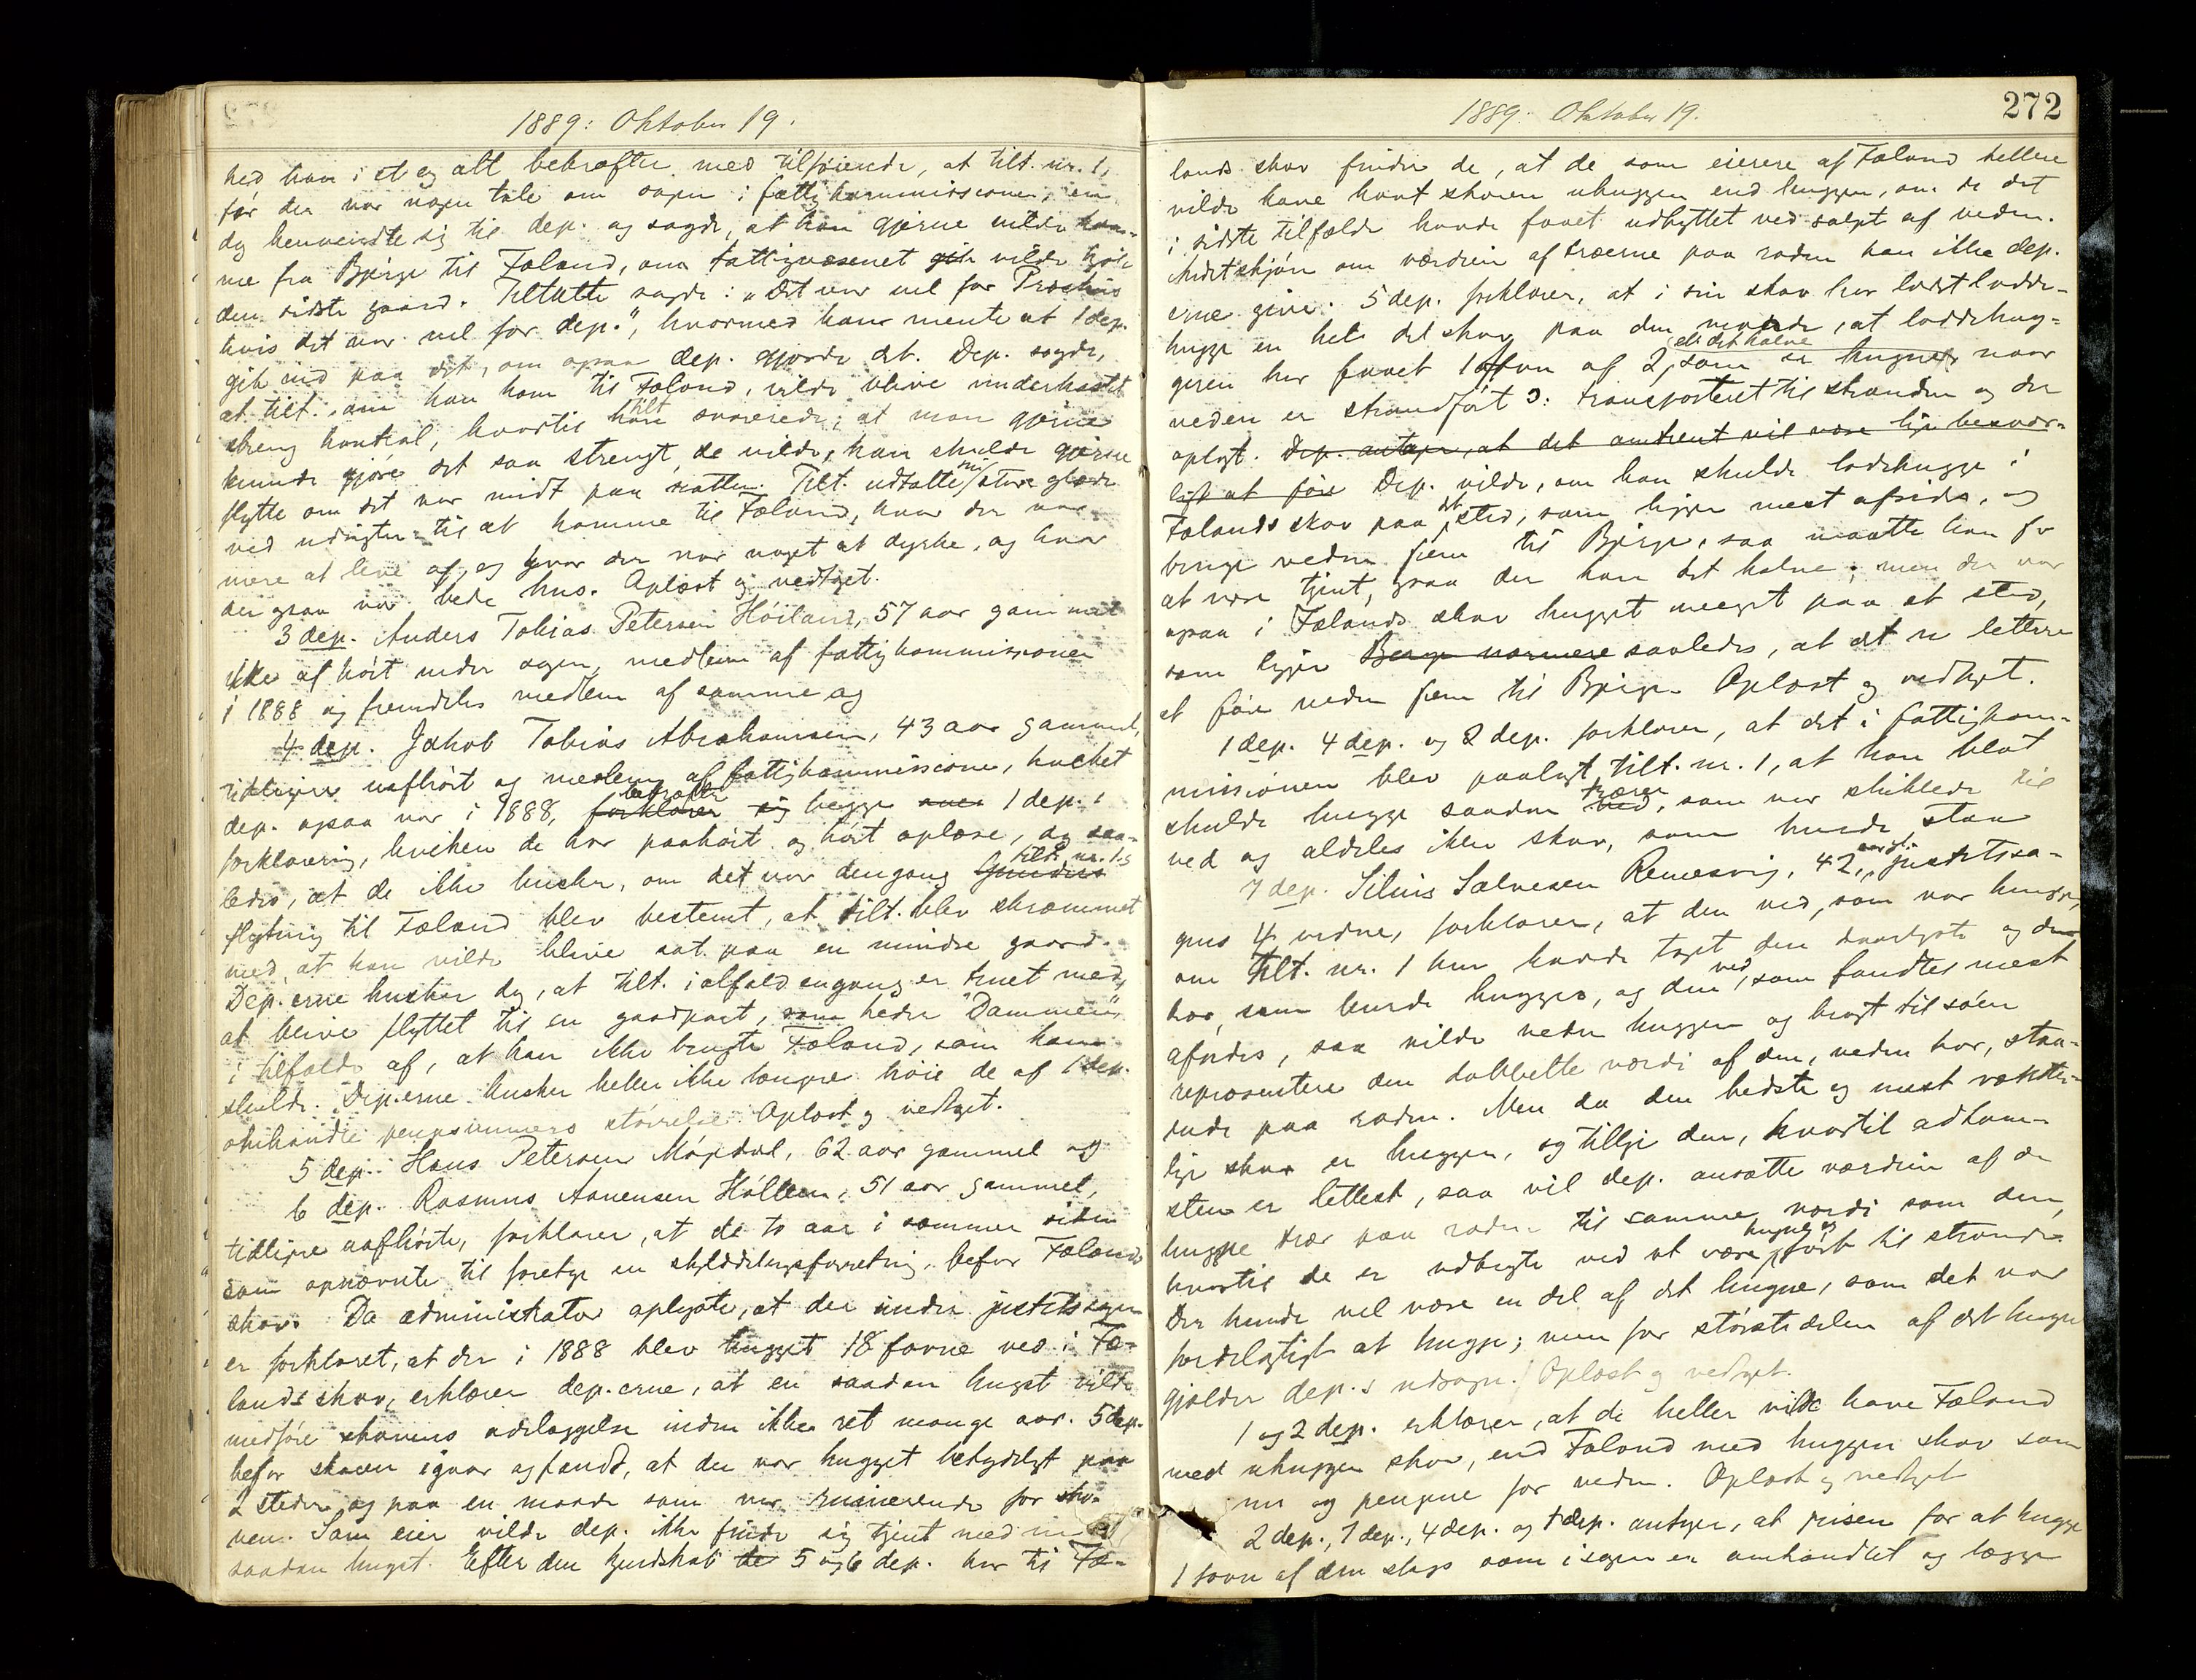 1889: Oktober 19.
hed han i et og alt bekræfter med tilföiende, at tilt. nr. 1,
för der var nogen tale om sagen i fattigkommissionen, en
dag henvendte sig til dep. og sagde, at han gjerne vilde kom-
me fra Bjerge til Fæland, om fattigvæsenet gik vilde kjöbe
den sidste gaard. Tiltalte sagde: "Det var vel for
hvis det var vel for dep.", hvormed han mente at 1 dep.
gik ind paa det, om ogsaa dep. gjorde det. Dep. sagde,
at tilt., om han kom til Fæland, vilde blive underkastet
streng kontrol, hvortil han tilt. svarede, at man gjerne
kunde gjöre det saa strengt de vilde, han skulde gjerne
flytte om det var midt paa natten. Tilt. udtalte sin store glæde
ved udsigten til at komme til Fæland, hvor der var
mere at leve af, og hvor der var noget at dyrke, og hvor
der ogsaa var bedre hus. Oplæst og vedtaget.
3 dep. Anders Tobias Petersen Höiland, 57 aar gammel
ikke afhört under sagen, medlem af fattigkommissionen
i 1888 og fremdeles medlem af samme og
4 dep. Jakob Tobias Abrahamsen, 43 aar gammel,
tidligere uafhört og medlem af fattigkommissionen, hvilket
dep. ogsaa var i 1888, forklarer sig bekræfter begge 1 dep.s
forklaring, hvilken de har paahört og hört oplæse, dog saa-
ledes, at de ikke husker, om det var dengang tilt. nr. 1s
flytning til Fæland blev bestemt, at tilt. blev skræmmet
med, at han vilde blive sat paa en mindre gaard.
Dep.erne husker dog, at tilt. ialfald engang er truet med,
at blive flyttet til en gaardpart, som heder "Dammen"
i tilfælde af, at han ikke brugte Fæland, som han
skulde. Dep.erne husker heller ikke længere höie de af 1 dep.
omhandlede pengesummers störrelse. Oplæst og vedtaget.
5 dep. Hans Petersen 62 aar gammel og
6 dep. Rasmus Aanensen 51 aar gammel,
tidligere uafhörte, forklarer, at de to aar i sommer siden
som opnævnte til foretage en skylddelingsforretning, befor Fælands
skov. Da administrator oplyste, at der under justitssagen
er forklaret, at der i 1888 blev hugget 18 favne ved i Fæ-
lands skov, erklærer dep.erne, at en saadan hugst vilde
medföre skovens ödelæggelse inden ikke ret mange aar. 5 dep.
befor skoven igaar og fandt, at der var hugget betydeligt paa
2 steder og paa en maade som var ruinerende for sko-
ven. Som eier vilde dep. ikke finde sig tjent med en
saadan hugst. Efter den kjendskab de 5 og 6 dep. har til Fæ-
1889: Oktober 19.
272
lands skov finder de, at de som eierere af Fæland hellere
vilde have havt skoven uhuggen end huggen, om de det
i sidste tilfælde havde faaet udbyttet ved salget af veden.
Andet skjön om værdien af træerne paa roden kan ikke dep.
erne give. 5 dep. forklarer, at i sin skov har ladet lodde-
hugge en hel del skov paa den maade, at loddehug-
geren har faaet 1 favn af 2, eller det halve som er hugnet, naar
veden er strandfört ɔ: transporteret til stranden og der
oplagt. Dep. antager, at det omtrent vil være lige besvær-
ligt at före Dep. vilde, om han skulde lodehugge i
Fælands skov paa et sted, som ligger mest afsides, og
bringe veden frem til Bjerge, saa maatte han for
at være tjent, faa den hele det halve; men der var
ogsaa i Fælands skov hugget meeget paa et sted,
som ligger Berge nærmere saaledes, at det er lettere
at före veden frem til Bjerge. Oplæst og vedtaget.
1 dep. 4 dep. og 2 dep. forklarer, at det i fattigkom-
missionen blev paalagt tilt. nr. 1, at han blot
skulde hugge saadan ved træer, som var skikkede til
ved og aldeles ikke skov, som burde staa
7 dep. Silius Salvesen 42 aar gl., justitssa-
gens 4 vidne, forklarer, at den ved, som var huggen,
om tilt. nr. 1 kun havde taget den daarligste og den
hos, som burde hugges, og den ved, som fandtes mest
afsides, saa vilde veden huggen og bragt til söen
repræsentere den dobbelte værdi af den, veden har, staa-
ende paa roden. Men da den bedste og mest væktte-
lige skov er huggen, og tillige den, hvortil adkom-
sten er lettest, saa vil dep. ansætte værdien af de
hugne trær paa roden til samme værdi som den,
hvortil de er udbragte ved at være hugne og fört til stranden.
Der kunde vel være en del af det hugne, som det var
fordelagtigt at hugge; men for störstedelen af det hugne
gjælder dep.s udsagn. Oplæst og vedtaget.
1 og 2 dep. erklærer, at de heller vilde have Fæland
med uhuggen skov, end Fæland med huggen skov som
nu og pengene for veden. Oplæst og vedtaget
2 dep., 7 dep., 4 dep. og 1 dep. antager, at prisen for at hugge
1 favn af den slags som i sagen er omhandlet og lægge